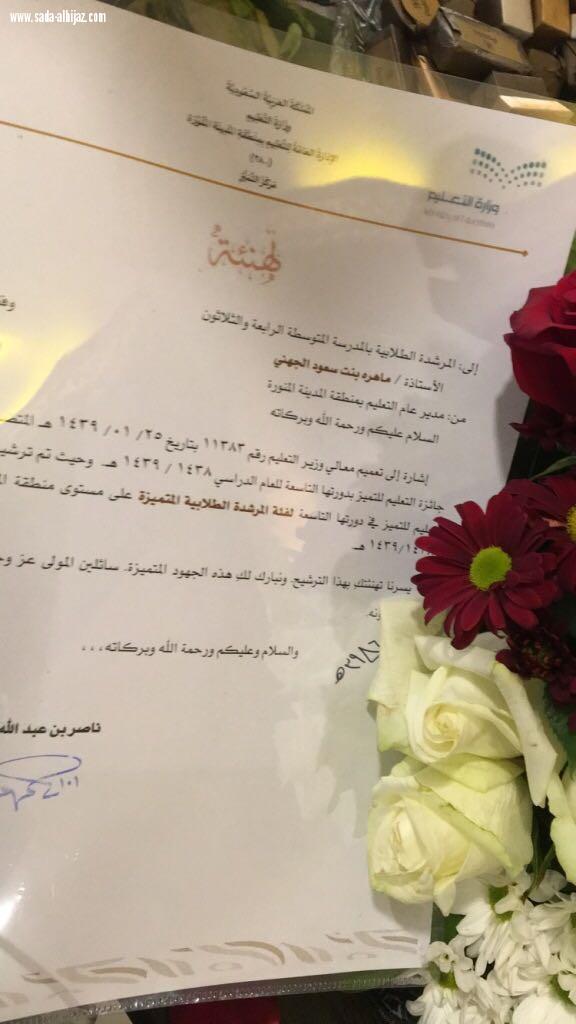 www.sada-alhijaz.com
المملكة العربية السعودية
وزارة التعليم
الإدارة العامة للتعليم بمنطقة المدينة المنورة
(٢٨٠)
مركز التميز
وزارة التعليم
Ministry of Education
تهنئة
إلى: المرشدة الطلابية بالمدرسة المتوسطة الرابعة والثلاثون
الأستاذة / ماهره بنت سعود الجهني
من: مدير عام التعليم بمنطقة المدينة المنورة
السلام عليكم ورحمة الله وبركاته
إشارة إلى تعميم معالي وزير التعليم رقم ١١٣٨٣ بتاريخ ٢٥/ ٠١/ ١٤٣٩ هـ
جائزة التعليم للتميز بدورتها التاسعة للعام الدراسي ١٤٣٨ / ١٤٣٩ هـ. وحيث تم
للتميز في دورتها التاسعة لفئة المرشدة الطلابية المتميزة على مستوى منطقة
١٤٣٩/ هـ
يسرنا تهنئتك بهذا الترشيح. ونبارك لكِ هذه الجهود المتميزة. سائلين المولى عز
والسلام وعليكم ورحمة الله وبركاته،،،
ناصر بن عبد الله